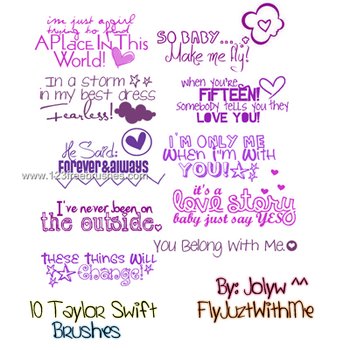 im just a girl
trying to find
A Place In This
World!
So Baby...
Make me fly!
In a storm
in my best dress
Fearless!
when you're
FIFTEEN!
somebody tells you they
LOVE YOU!
He Said:
forever&always
I'm only me
When I"m With
YOU!
www.123freebrushes.com
it's a
love story
baby just say YES
I've never been on
the outside.
You Belong With Me.
these things will
Change!
10 Taylor Swift
Brushes
By: Jolyw ^^
FlyJuztWithMe